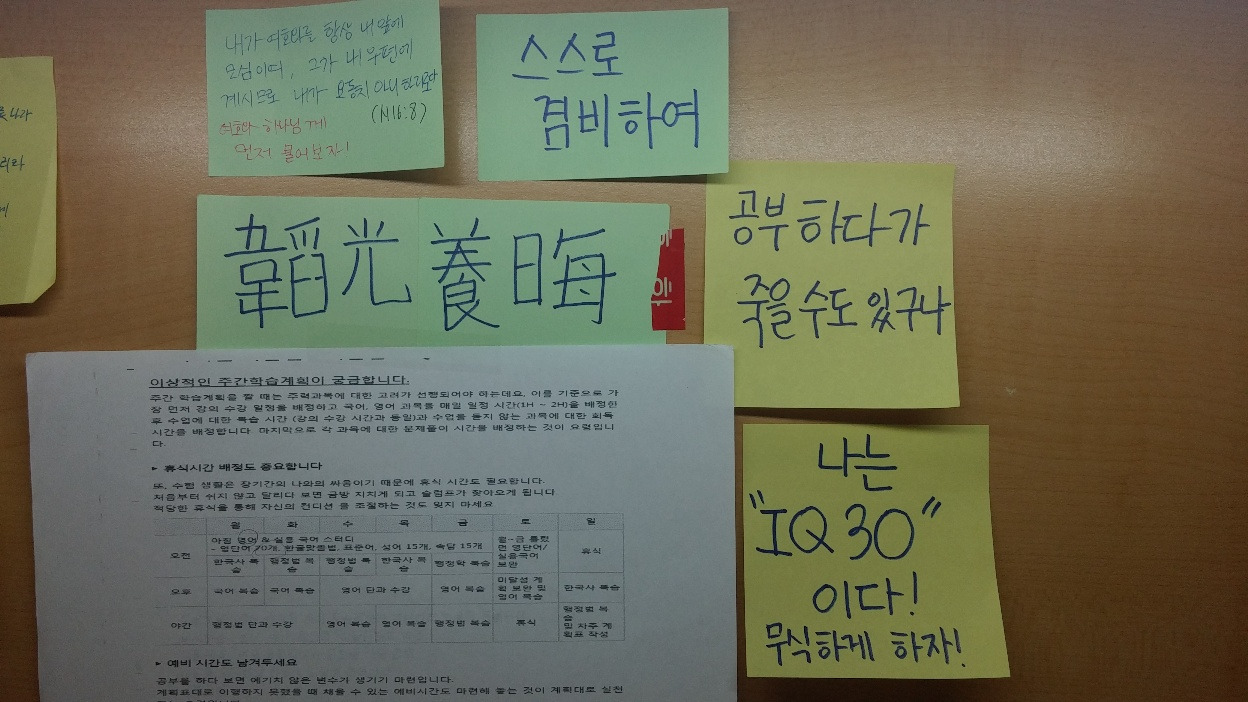 내가 여호와를 항상 내 앞에
모심이여, 그가 내 우편에
계시므로 내가 요동치 아니하리로다
(시16:8)
여호와 하나님께
먼저 물어보자!
스스로
겸비하여
韜光養晦
공부하다가
죽을수도 있구나
이상적인 주간학습계획이 궁금합니다.
주간 학습계획을 짤 때는 주력과목에 대한 고려가 선행되어야 하는데요, 이를 기준으로 가
장 먼저 강의 수강 일정을 배정하고 국어, 영어 과목을 매일 일정 시간(1H ~ 2H)을 배정한
후 수업에 대한 복습 시간 (강의 수강 시간과 동일)과 수업을 듣지 않는 과목에 대한 회독
시간을 배정합니다. 마지막으로 각 과목에 대한 문제풀이 시간을 배정하는 것이 요령입니
다.
▸ 휴식시간 배정도 중요합니다
또, 수험 생활은 장기간의 나와의 싸움이기 때문에 휴식 시간도 필요합니다.
처음부터 쉬지 않고 달리다 보면 금방 지치게 되고 슬럼프가 찾아오게 됩니다
적당한 휴식을 통해 자신의 컨디션을 조절하는 것도 잊지 마세요
월 화 수 목 금 토 일
아침 영어 & 실용 국어 스터디
- 영단어 70개, 한글맞춤법, 표준어, 성어 15개, 속담 15개
오전 한국사 복습 행정법 복습 행정법 복습 한국사 복습 행정학 복습 월~금 틀렸던 영단어/실용국어 보완 휴식
오후 국어 복습 국어 복습 영어 단과 수강 영어 복습 미달성 계획 보완 및 영어 복습 한국사 복습
야간 행정법 단과 수강 영어 복습 영어 복습 행정법 복습 휴식 행정법 복습 및 차주 계획표 작성
▸ 예비 시간도 남겨두세요
공부를 하다 보면 예기치 않은 변수가 생기기 마련입니다.
계획표대로 이행하지 못했을 때 채울 수 있는 예비시간도 마련해 놓는 것이 계획대로 실천
나는
"IQ 30"
이다!
무식하게 하자!